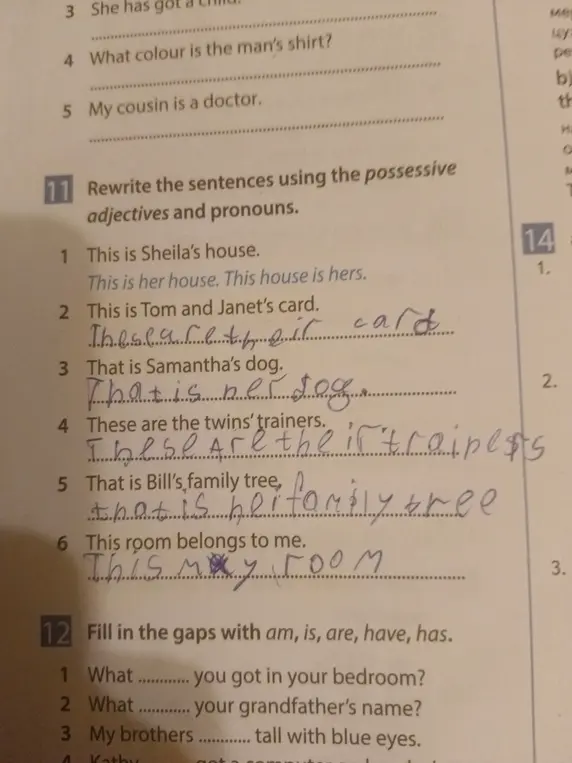 3 She has got a child.
4 What colour is the man's shirt?
5 My cousin is a doctor.
11 Rewrite the sentences using the possessive
adjectives and pronouns.
1 This is Sheila's house.
This is her house. This house is hers.
2 This is Tom and Janet's card.
These are their card
3 That is Samantha's dog.
That is her dog.
4 These are the twins' trainers.
These Are their trainers
5 That is Bill's family tree.
that is hei family tree
6 This room belongs to me.
This my room
12 Fill in the gaps with am, is, are, have, has.
1 What ............ you got in your bedroom?
2 What ............ your grandfather's name?
3 My brothers ............ tall with blue eyes.
4 Kathy
b)
th
14
1.
2.
3.